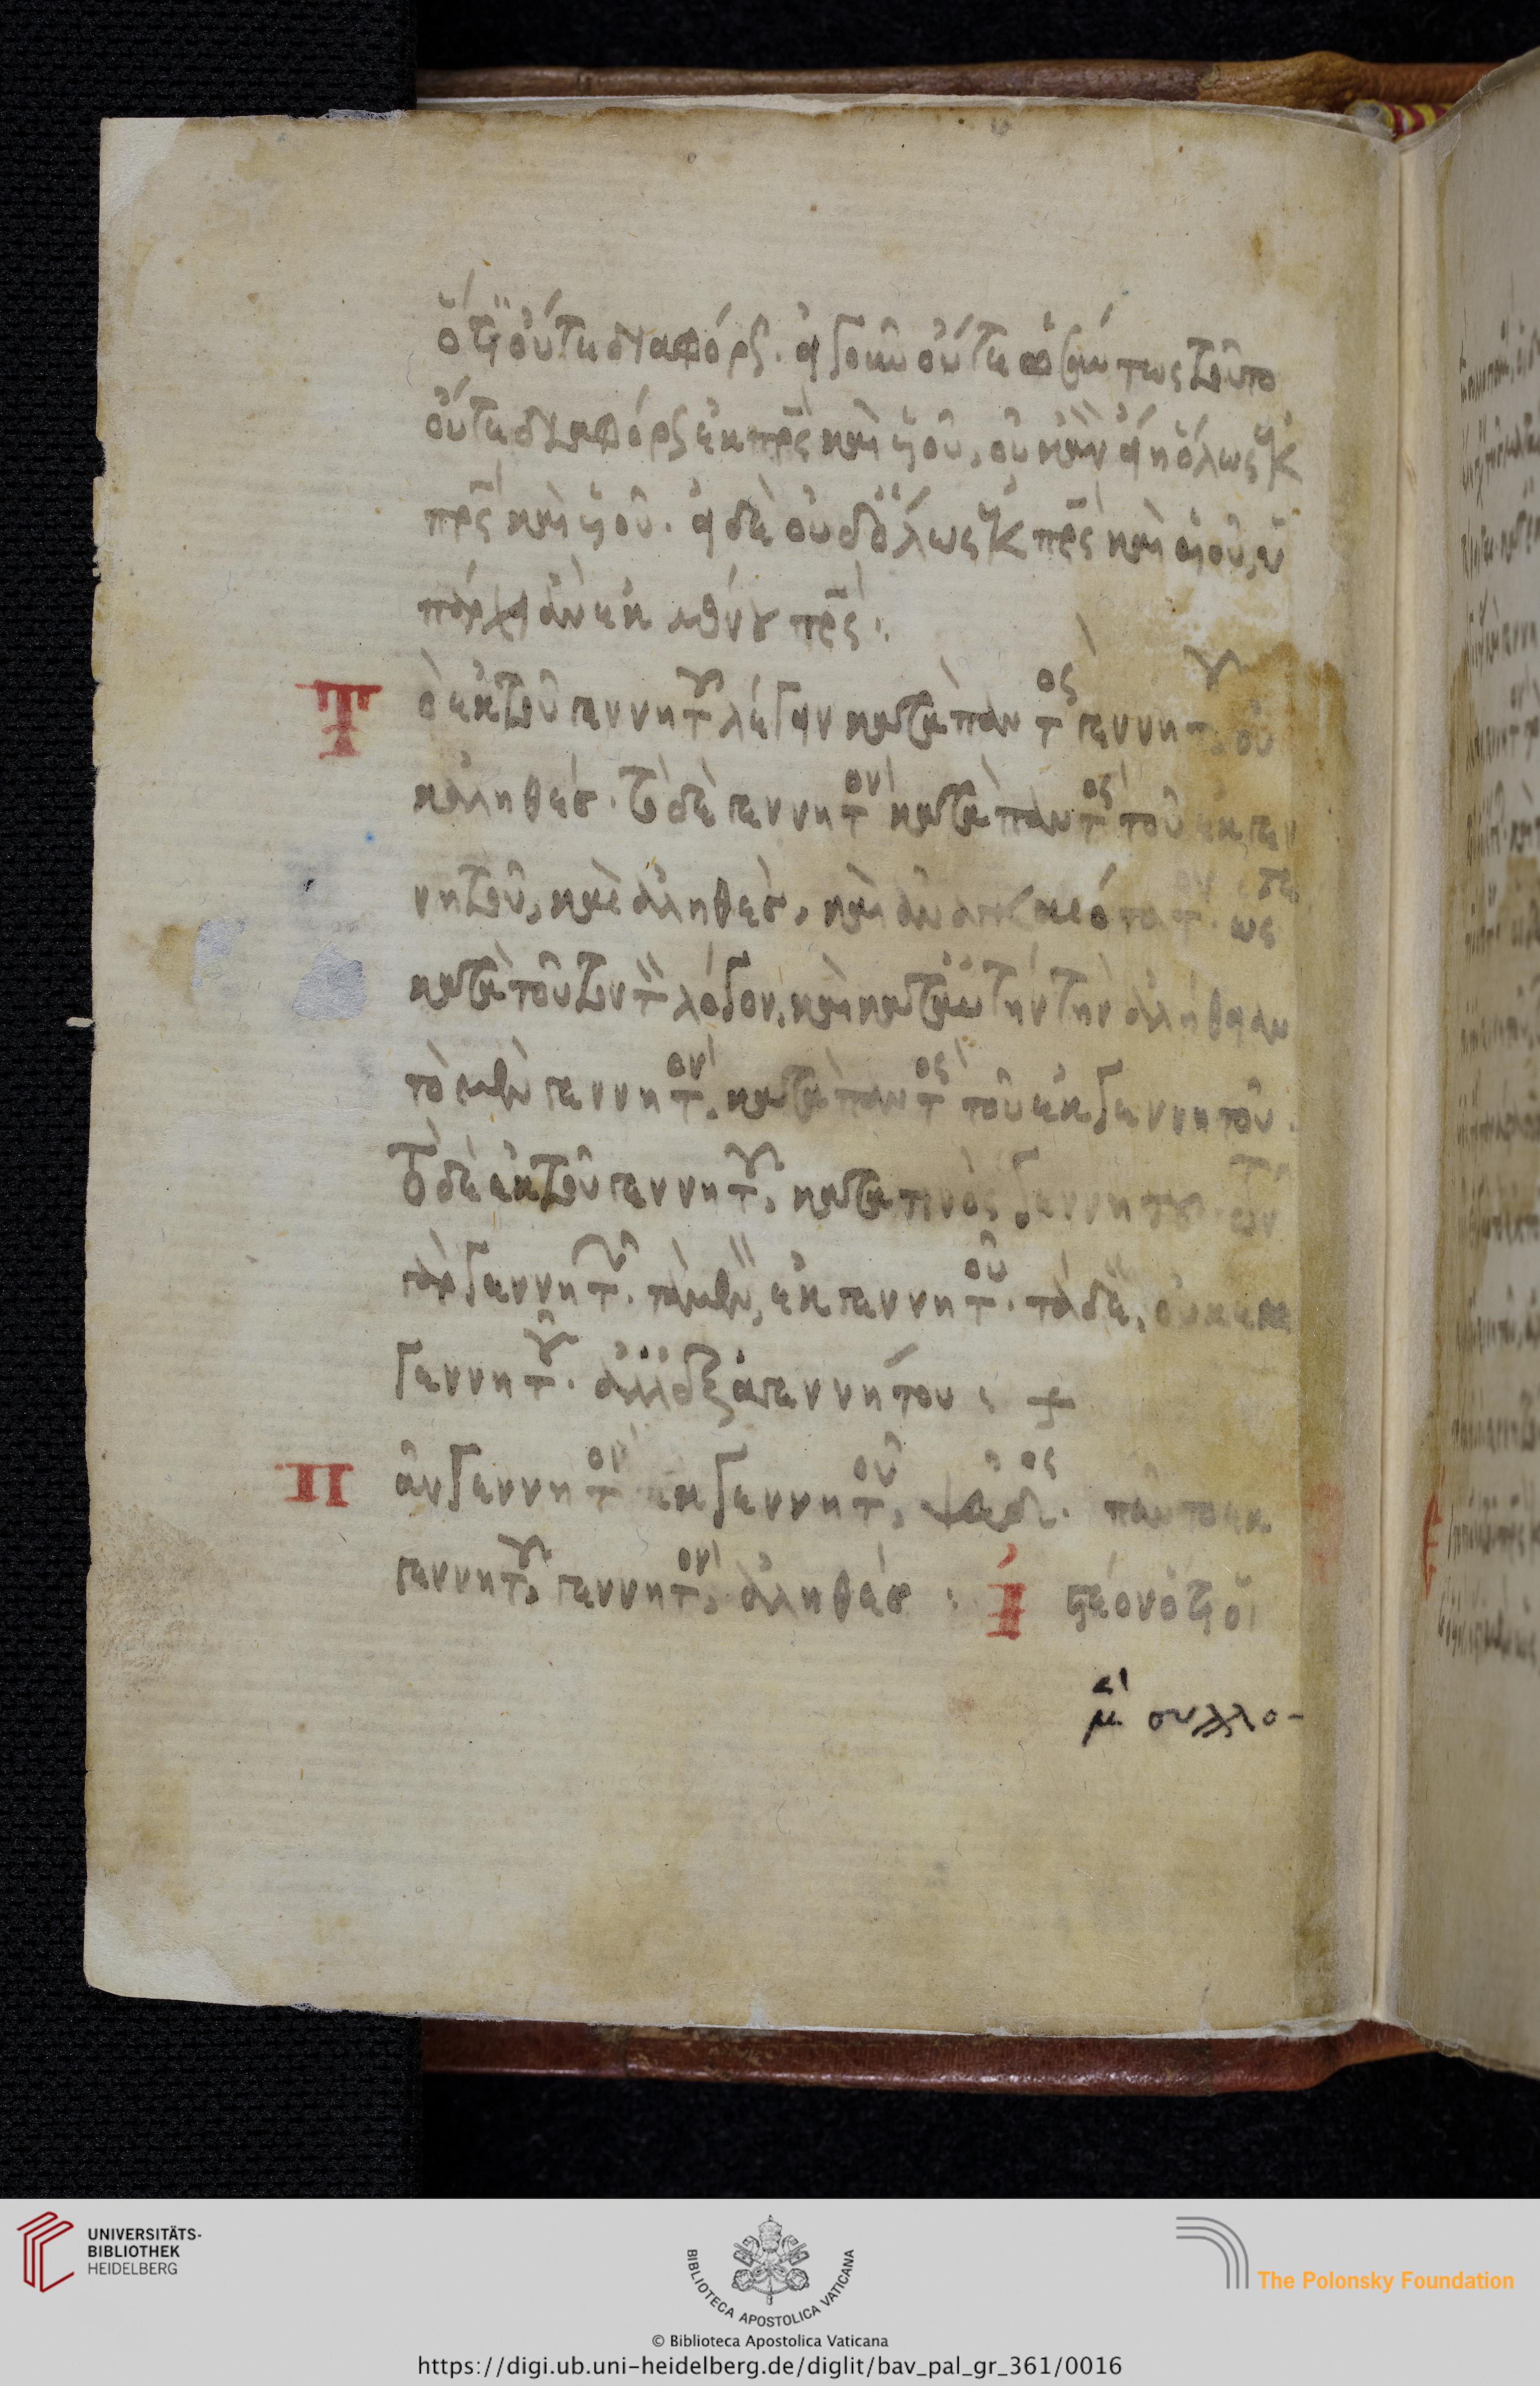 ὅτι οὔτε διαφόρως. εἰ γοῦν οὔτε ὡσαύτως τοῦτο
οὔτε διαφόρως ἐκ πρς καὶ υἱοῦ, οὐκ ἂν εἴη ὅλως ἐκ
πρς καὶ υἱοῦ. εἰ δὲ οὐδ' ὅλως ἐκ πρς καὶ υἱοῦ,
ἐκ μόνου πρς:
Τὸ ἐκ τοῦ γεννητοῦ λέγειν κατὰ παντὸς γεννητοῦ, οὐ
κ ἀληθές. τὸ δὲ γεννητὸν κατὰ παντὸς τοῦ ἐκ γεν
νητοῦ, καὶ ἀληθές, καὶ ὥστε
κατὰ τοῦτον τὸν λόγον, καὶ κατ' αὐτὴν τὴν ἀλήθειαν
τὸ μὲν γεννητὸν, κατὰ παντὸς τοῦ ἐκ γεννητοῦ.
τὸ δὲ ἐκ τοῦ γεννητοῦ, κατὰ τινὸς γεννητοῦ. τῶν
γὰρ γεννητῶν. τὰ μὲν, ἐκ γεννητοῦ. τὰ δὲ, οὐκ ἐκ
γεννητοῦ. ἀλλ' ἐξ ἀγεννήτου: +
Πᾶν γεννητὸν ἐκ γεννητοῦ, ψεῦδος. πᾶν τὸ ἐκ
γεννητοῦ, γεννητὸν, ἀληθές: Ἰστέον ὅτι οἱ
μ συλλο-
UNIVERSITÄTS-
BIBLIOTHEK
HEIDELBERG
BIBLIOTECA APOSTOLICA VATICANA
The Polonsky Foundation
© Biblioteca Apostolica Vaticana
https://digi.ub.uni-heidelberg.de/diglit/bav_pal_gr_361/0016